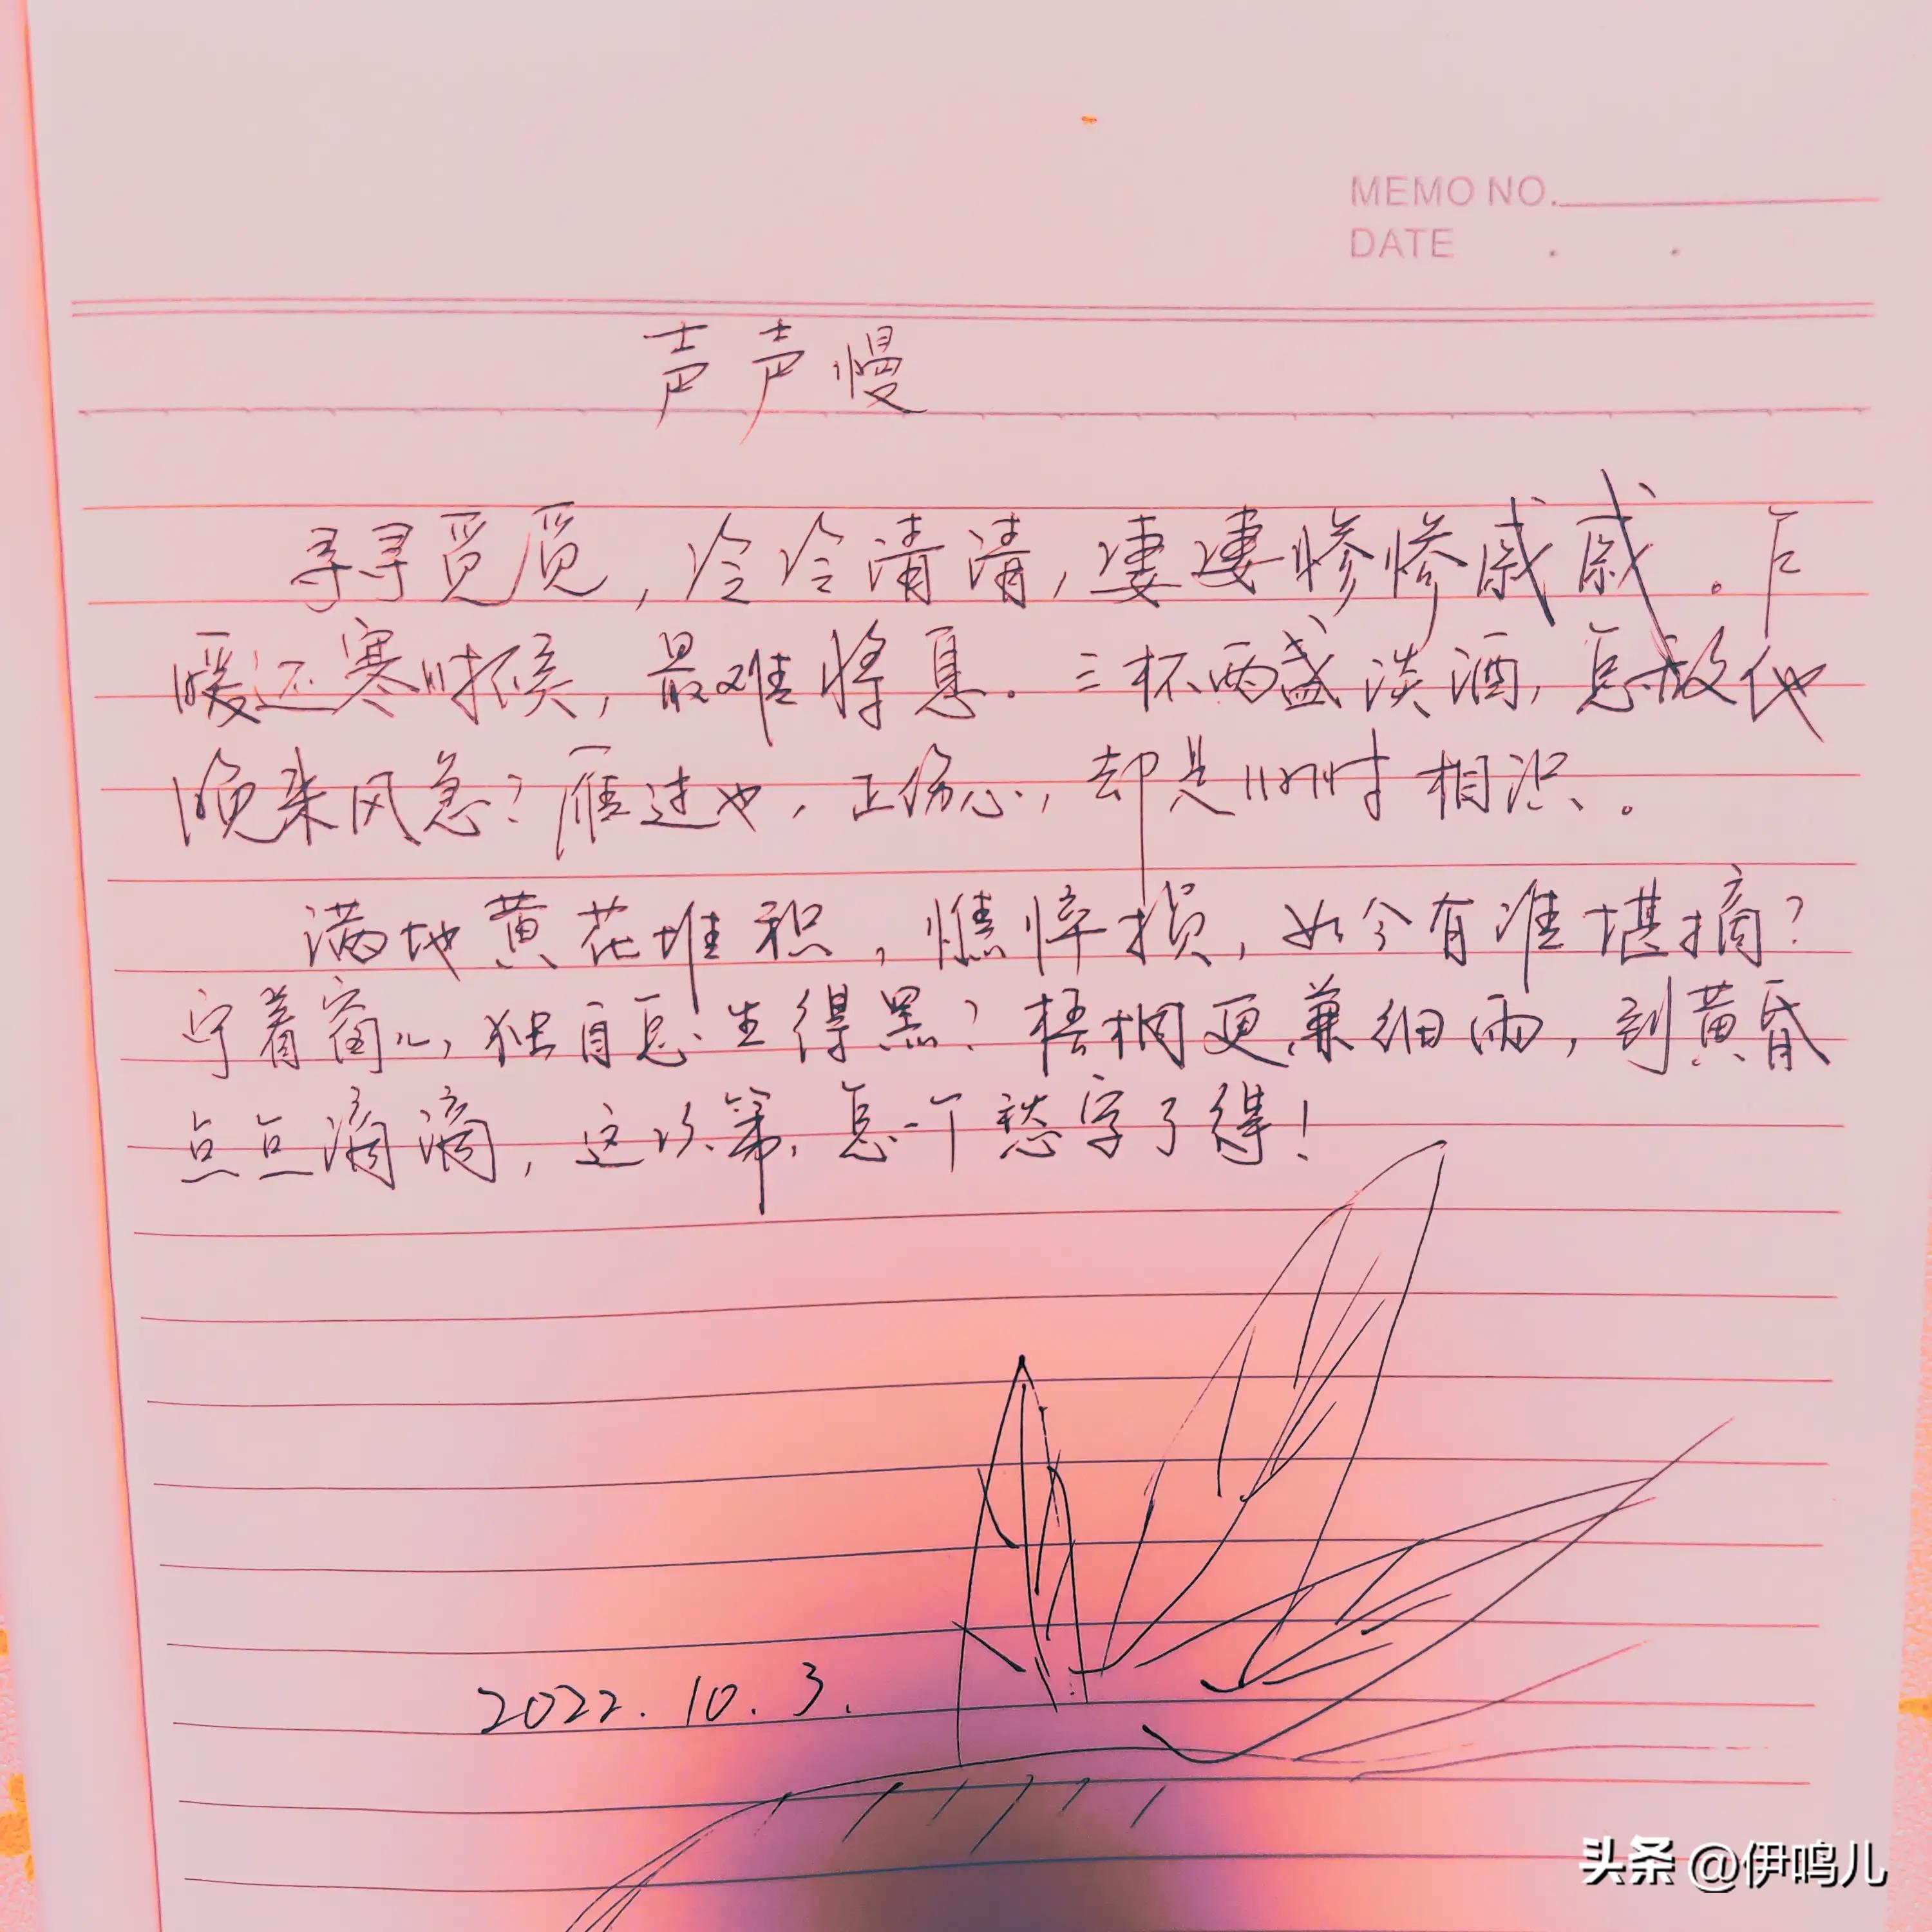 MEMO NO.
DATE . .
声声慢
寻寻觅觅,冷冷清清,凄凄惨惨戚戚。乍
暖还寒时候,最难将息。三杯两盏淡酒,怎敌他
晚来风急?雁过也,正伤心,却是旧时相识。
满地黄花堆积,憔悴损,如今有谁堪摘?
守着窗儿,独自怎生得黑?梧桐更兼细雨,到黄昏
点点滴滴,这次第,怎一个愁字了得!
2022.10.3.
头条 @伊鸣儿